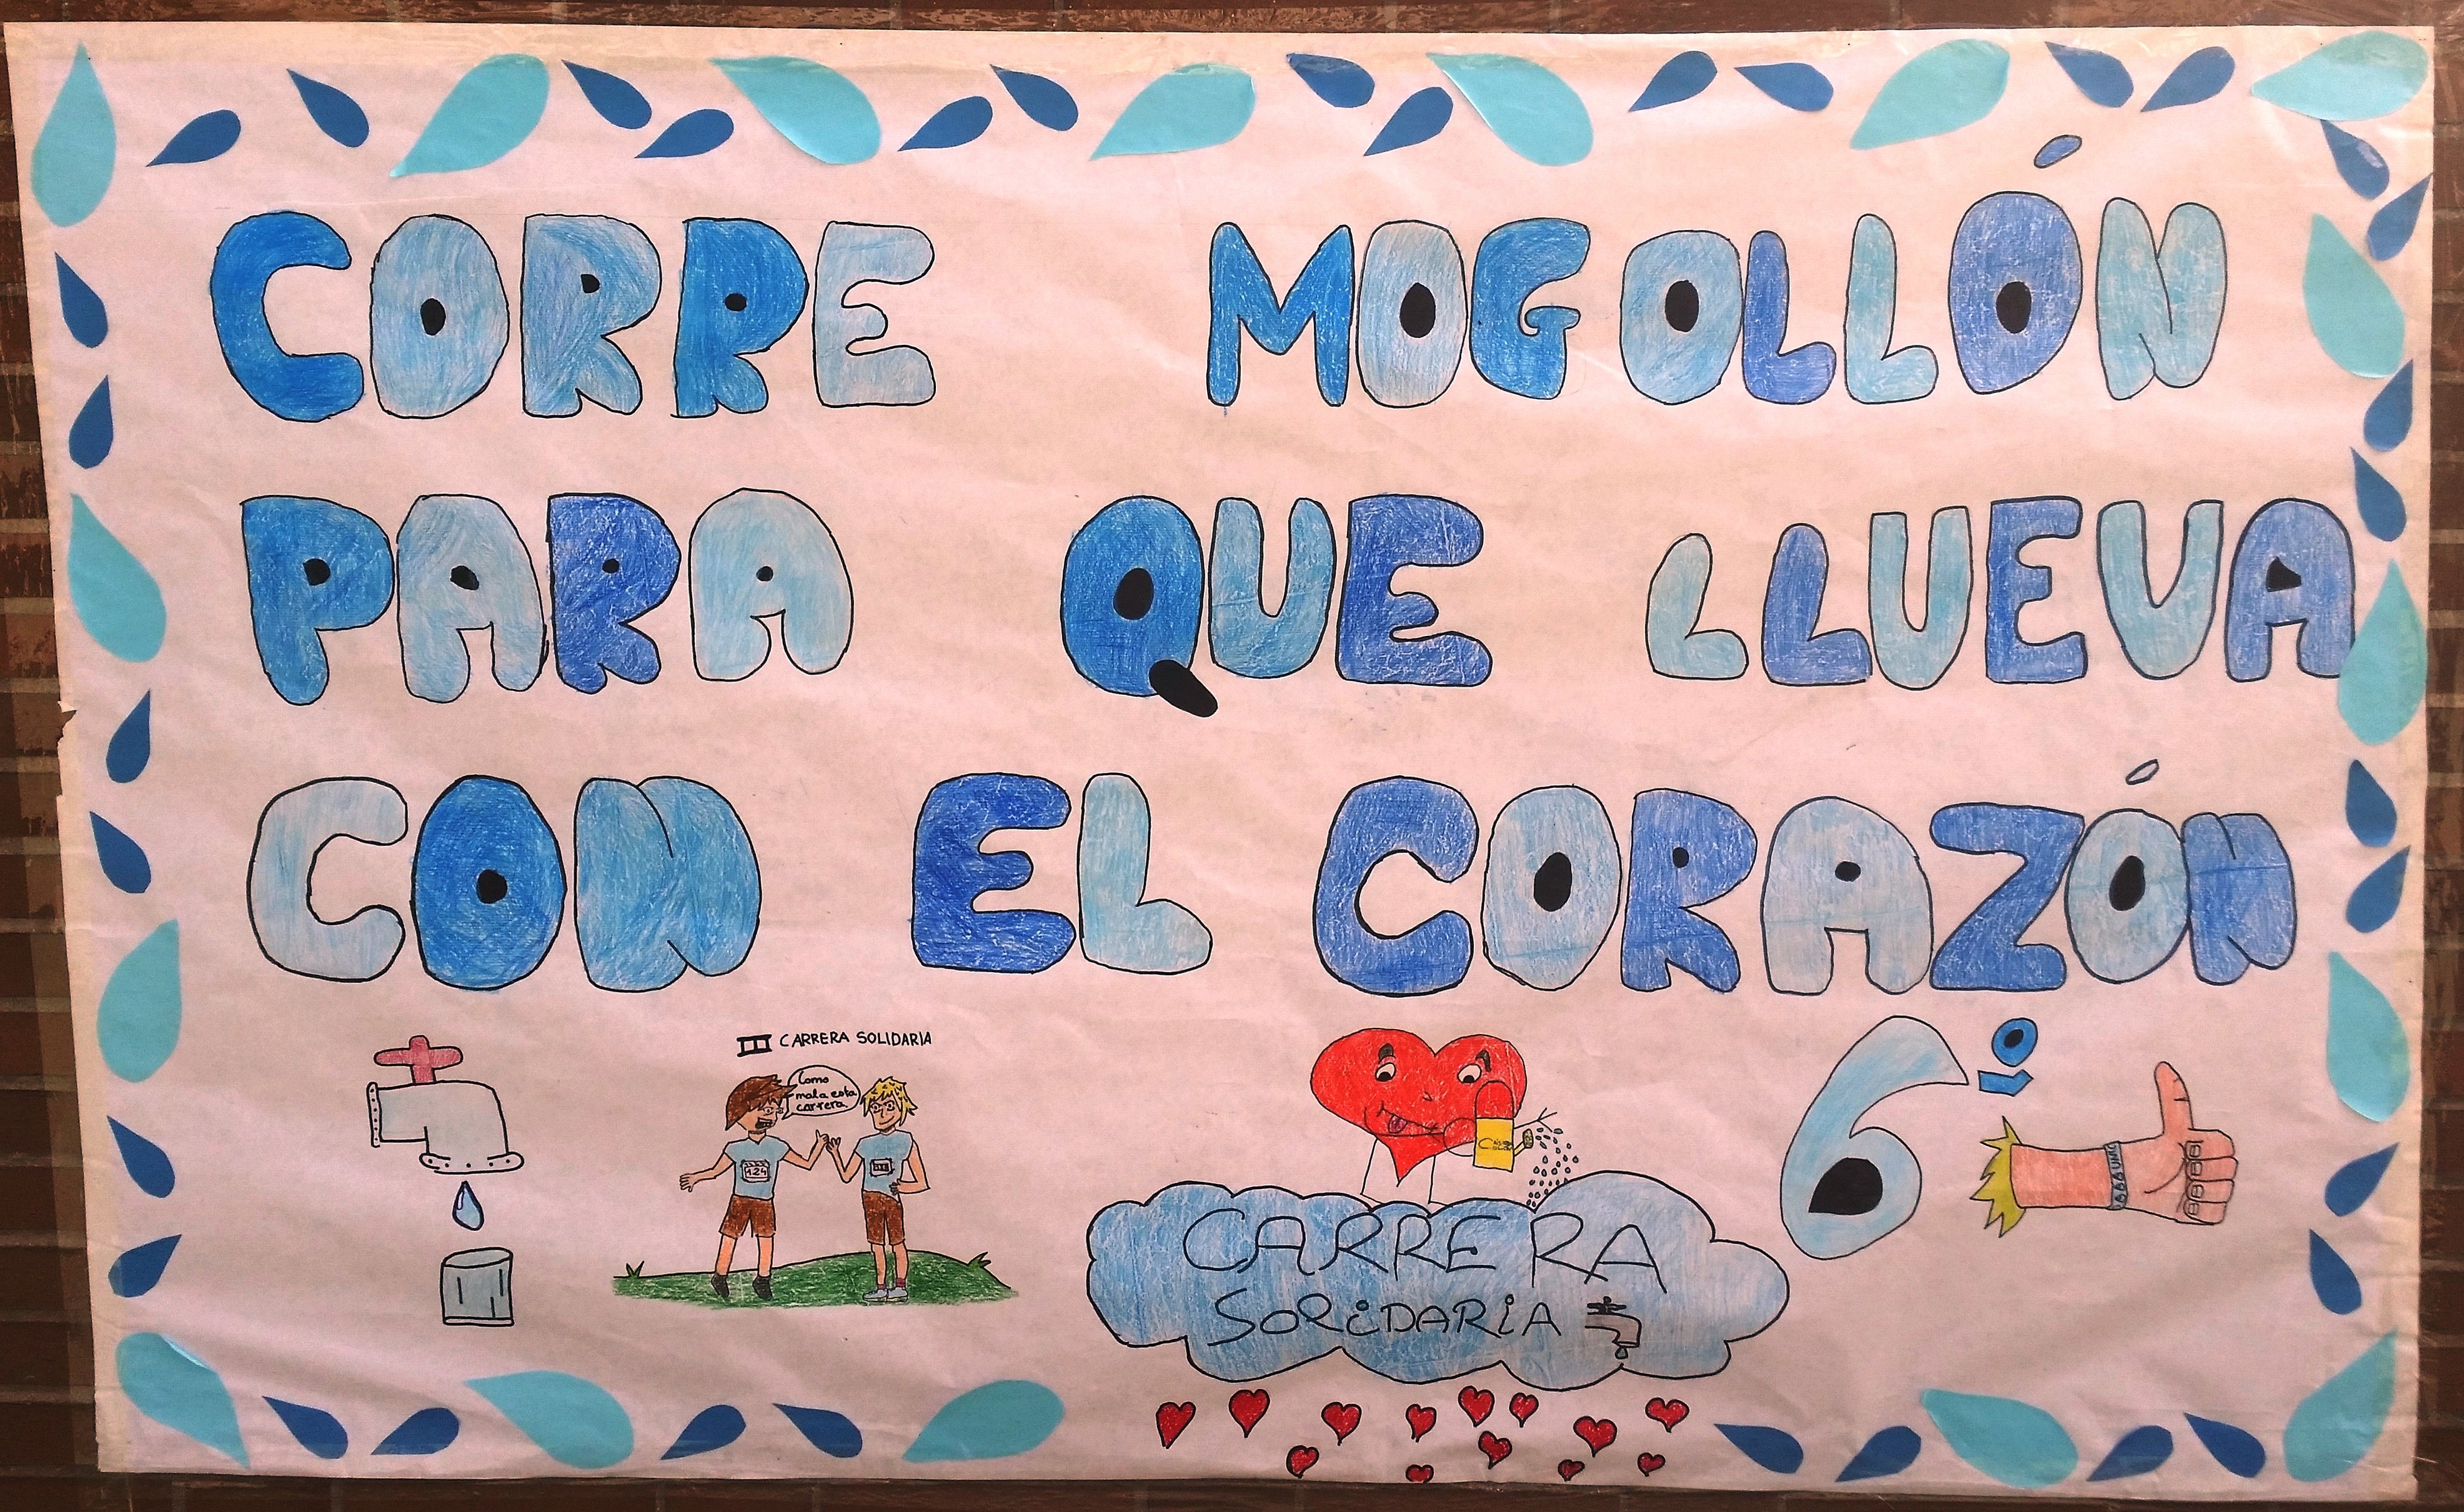 CORRE MOGOLLÓN
PARA QUE LLUEVA
CON EL CORAZÓN
III CARRERA SOLIDARIA
Como
mola esta
carrera
124
6º
CARRERA
SOLiDARiA